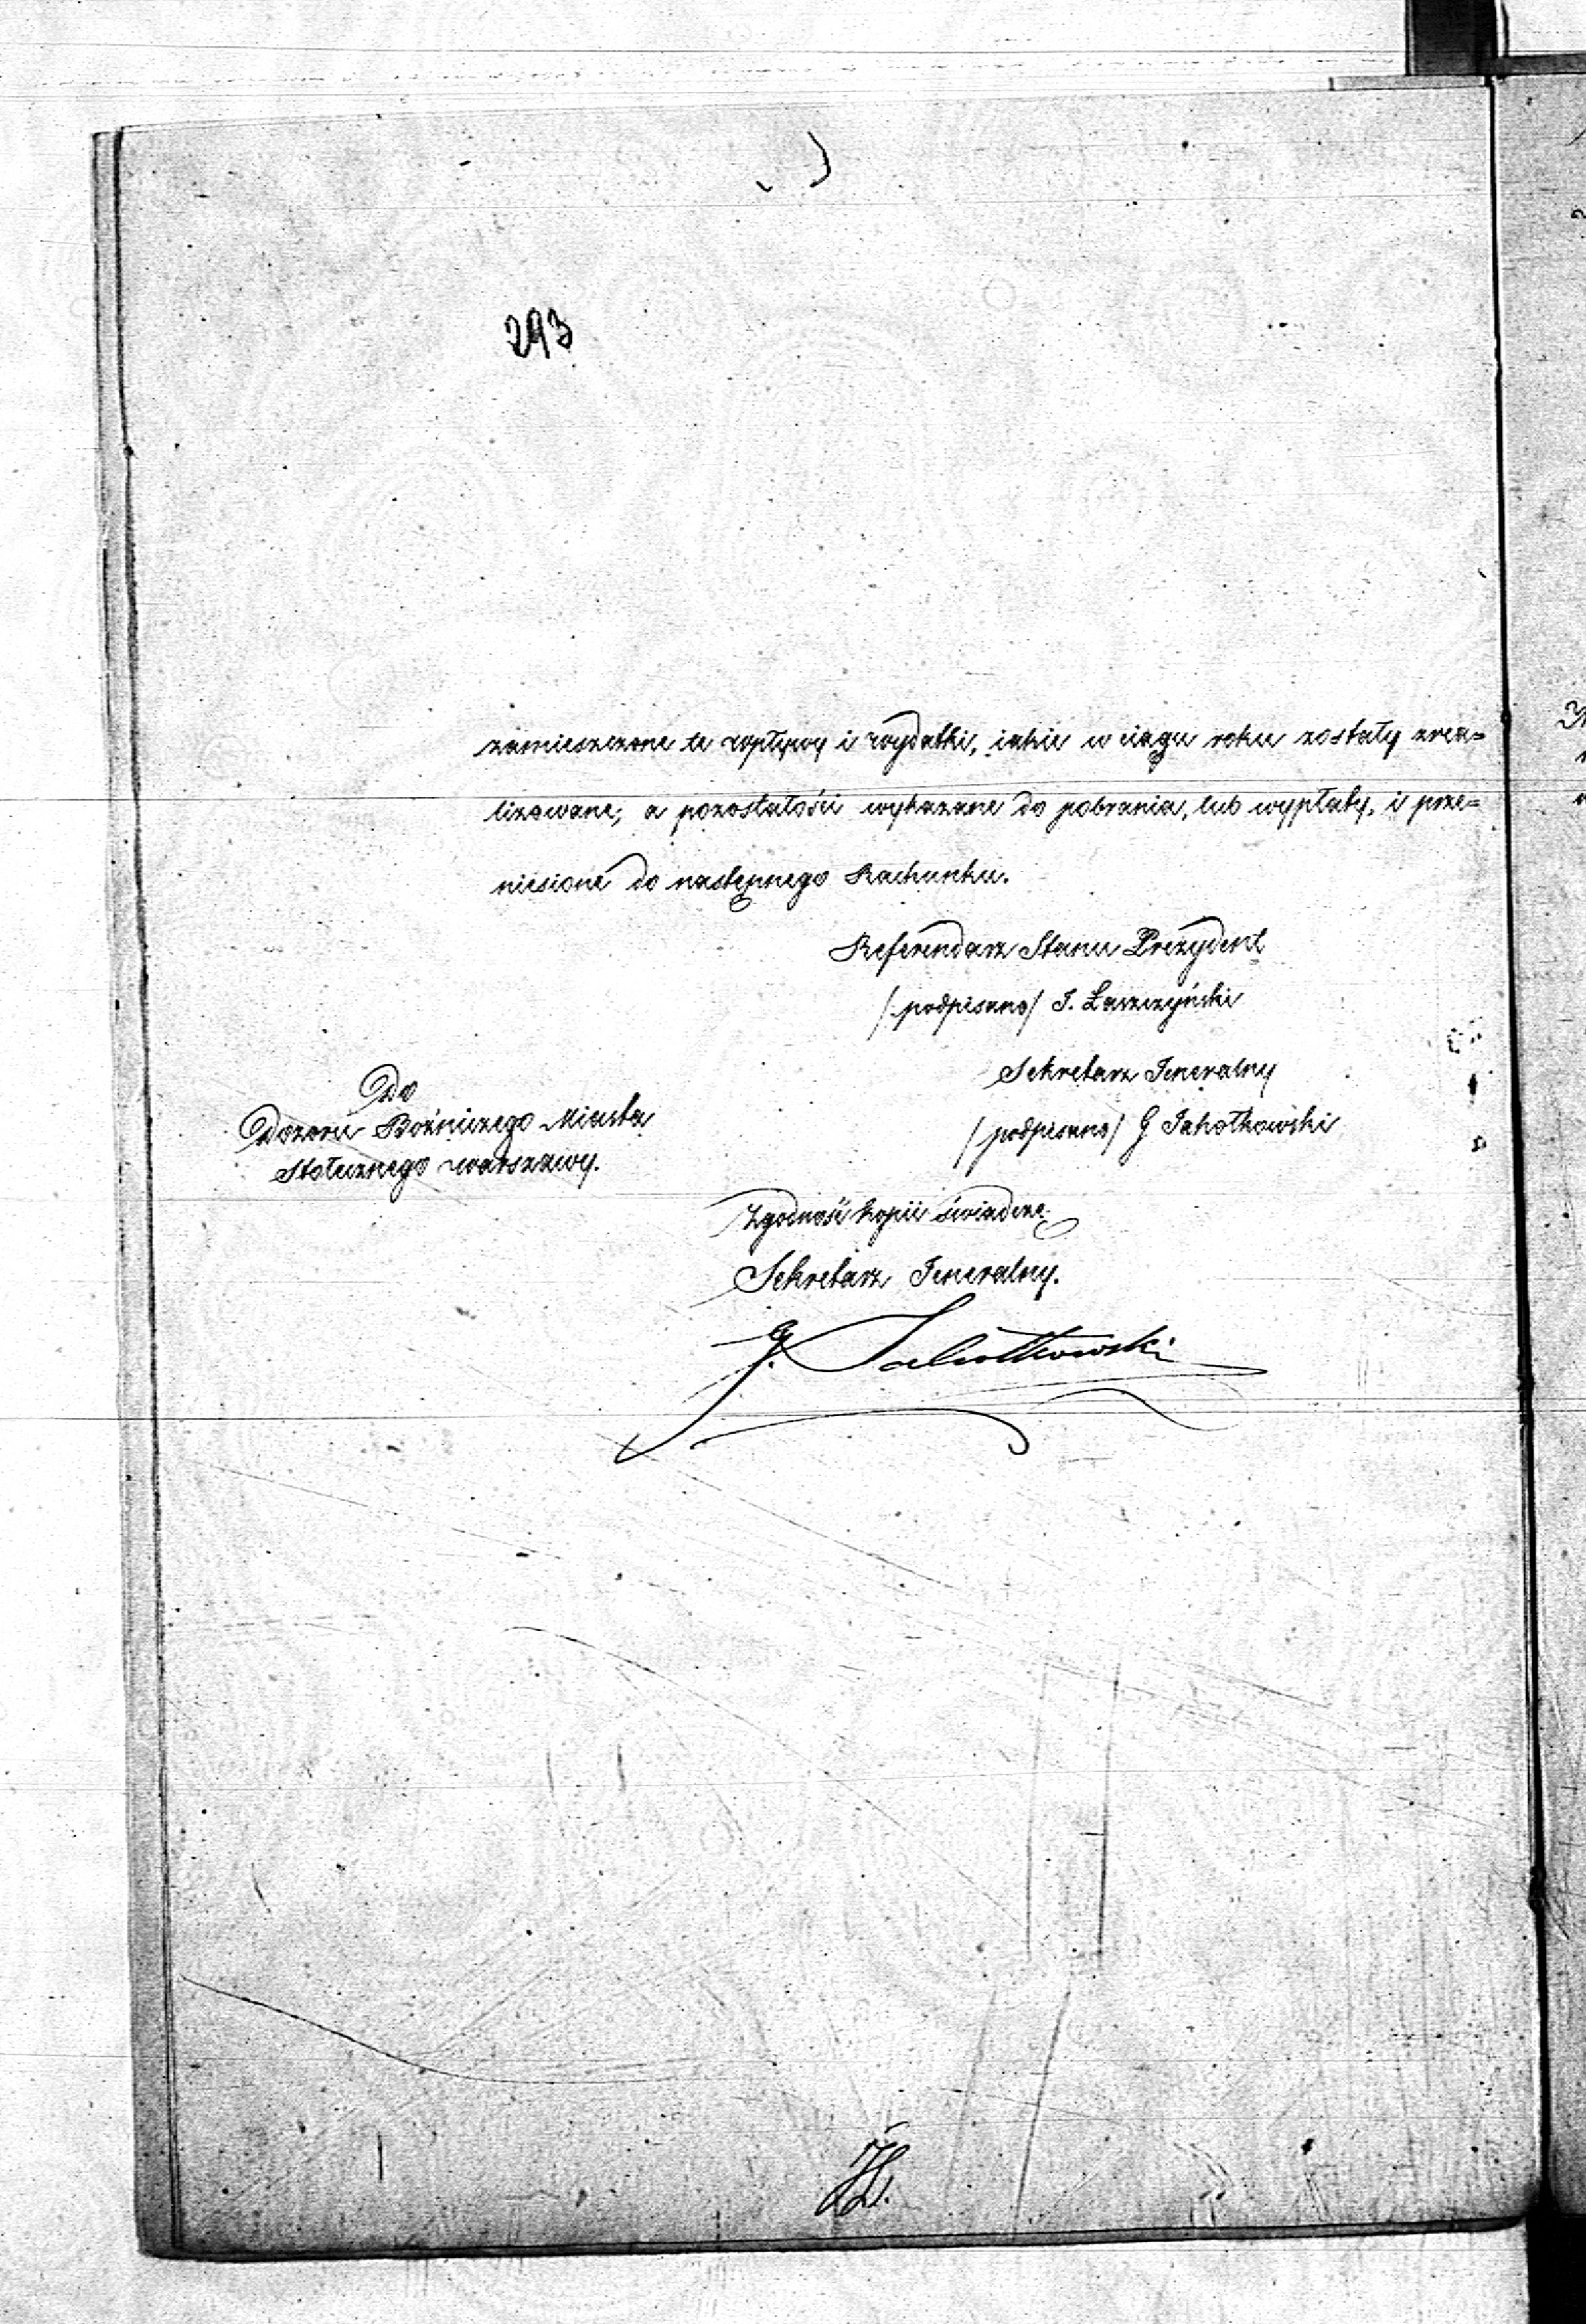 293
zamieszczone te wpływy i wydatki, iakie w ciągu roku zostały zrea=
lizowane, a pozostałości wykazane do pobrania, lub wypłaty, i prze=
niesione do następnego Rachunku.
Referendarz Stanu Prezydent
/podpisano/ I. Łaszczyński
Sekretarz Jeneralny
/podpisano/ G Jahołkowski
Do
Dozoru Bóżniczego Miasta
Stołecznego Warszawy.
Zgodność kopii świadczę
Sekretarz Jeneralny.
G. Jahołkowski